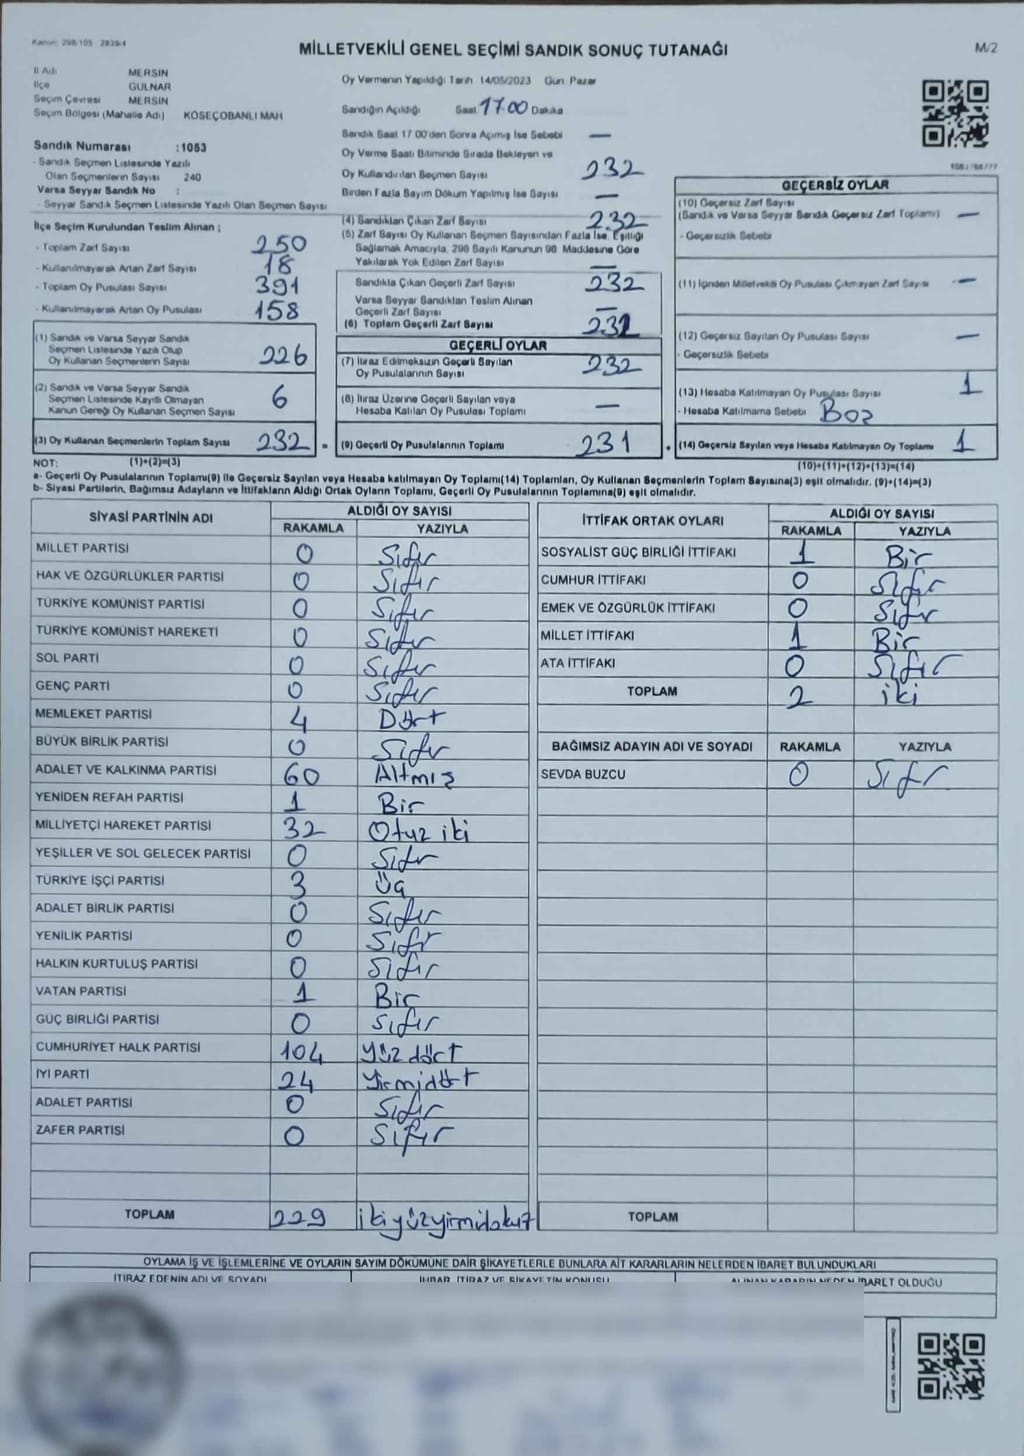 Kanun: 298/105 2839/4
MİLLETVEKİLİ GENEL SEÇİMİ SANDIK SONUÇ TUTANAĞI
M/2
İl Adı MERSİN
İlçe GÜLNAR
Seçim Çevresi MERSİN
Seçim Bölgesi (Mahalle Adı) KÖSEÇOBANLI MAH
Oy Vermenin Yapıldığı Tarih 14/05/2023 Gün Pazar
Sandığın Açıldığı Saat 17.00 Dakika
Sandık Saat 17 00'den Sonra Açmış İse Sebebi —
Sandık Numarası :1053
- Sandık Seçmen Listesinde Yazılı
Olan Seçmenlerin Sayısı 240
Varsa Seyyar Sandık No :
- Seyyar Sandık Seçmen Listesinde Yazılı Olan Seçmen Sayısı
Oy Verme Saati Bitiminde Sırada Bekleyen ve
Oy Kullandırılan Seçmen Sayısı 232
Birden Fazla Sayım Döküm Yapılmış İse Sayısı —
İlçe Seçim Kurulundan Teslim Alınan ;
- Toplam Zarf Sayısı 250
- Kullanılmayarak Artan Zarf Sayısı 18
- Toplam Oy Pusulası Sayısı 391
- Kullanılmayarak Artan Oy Pusulası 158
(4) Sandıktan Çıkan Zarf Sayısı 232
(5) Zarf Sayısı Oy Kullanan Seçmen Sayısından Fazla İse, Eşitliği
Sağlamak Amacıyla, 298 Sayılı Kanunun 98. Maddesine Göre
Yakılarak Yok Edilen Zarf Sayısı —
Sandıkta Çıkan Geçerli Zarf Sayısı 232
Varsa Seyyar Sandıktan Teslim Alınan
Geçerli Zarf Sayısı —
(6) Toplam Geçerli Zarf Sayısı 232
(1) Sandık ve Varsa Seyyar Sandık
Seçmen Listesinde Yazılı Olup
Oy Kullanan Seçmenlerin Sayısı 226
(2) Sandık ve Varsa Seyyar Sandık
Seçmen Listesinde Kayıtlı Olmayan
Kanun Gereği Oy Kullanan Seçmen Sayısı 6
(3) Oy Kullanan Seçmenlerin Toplam Sayısı 232 =
GEÇERLİ OYLAR
(7) İtiraz Edilmeksizin Geçerli Sayılan
Oy Pusulalarının Sayısı 232
(8) İtiraz Üzerine Geçerli Sayılan veya
Hesaba Katılan Oy Pusulası Toplamı —
(9) Geçerli Oy Pusulalarının Toplamı 231 +
GEÇERSİZ OYLAR
(10) Geçersiz Zarf Sayısı
(Sandık ve Varsa Seyyar Sandık Geçersiz Zarf Toplamı) —
- Geçersizlik Sebebi
(11) İçinden Milletvekili Oy Pusulası Çıkmayan Zarf Sayısı —
(12) Geçersiz Sayılan Oy Pusulası Sayısı —
- Geçersizlik Sebebi
(13) Hesaba Katılmayan Oy Pusulası Sayısı 1
- Hesaba Katılmama Sebebi Boz
(14) Geçersiz Sayılan veya Hesaba Katılmayan Oy Toplamı 1
NOT: (1)+(2)=(3)
(10)+(11)+(12)+(13)=(14)
a- Geçerli Oy Pusulalarının Toplamı(9) ile Geçersiz Sayılan veya Hesaba katılmayan Oy Toplamı(14) Toplamları, Oy Kullanan Seçmenlerin Toplam Sayısına(3) eşit olmalıdır. (9)+(14)=(3)
b- Siyasi Partilerin, Bağımsız Adayların ve İttifakların Aldığı Ortak Oyların Toplamı, Geçerli Oy Pusulalarının Toplamına(9) eşit olmalıdır.
SİYASİ PARTİNİN ADI ALDIĞI OY SAYISI
RAKAMLA YAZIYLA
MİLLET PARTİSİ 0 Sıfır
HAK VE ÖZGÜRLÜKLER PARTİSİ 0 Sıfır
TÜRKİYE KOMÜNİST PARTİSİ 0 Sıfır
TÜRKİYE KOMÜNİST HAREKETİ 0 Sıfır
SOL PARTİ 0 Sıfır
GENÇ PARTİ 0 Sıfır
MEMLEKET PARTİSİ 4 Dört
BÜYÜK BİRLİK PARTİSİ 0 Sıfır
ADALET VE KALKINMA PARTİSİ 60 Altmış
YENİDEN REFAH PARTİSİ 1 Bir
MİLLİYETÇİ HAREKET PARTİSİ 32 Otuz iki
YEŞİLLER VE SOL GELECEK PARTİSİ 0 Sıfır
TÜRKİYE İŞÇİ PARTİSİ 3 Üç
ADALET BİRLİK PARTİSİ 0 Sıfır
YENİLİK PARTİSİ 0 Sıfır
HALKIN KURTULUŞ PARTİSİ 0 Sıfır
VATAN PARTİSİ 1 Bir
GÜÇ BİRLİĞİ PARTİSİ 0 Sıfır
CUMHURİYET HALK PARTİSİ 104 Yüz dört
İYİ PARTİ 24 Yirmidört
ADALET PARTİSİ 0 Sıfır
ZAFER PARTİSİ 0 Sıfır
TOPLAM 229 ikiyüzyirmidokuz
İTTİFAK ORTAK OYLARI ALDIĞI OY SAYISI
RAKAMLA YAZIYLA
SOSYALİST GÜÇ BİRLİĞİ İTTİFAKI 1 Bir
CUMHUR İTTİFAKI 0 Sıfır
EMEK VE ÖZGÜRLÜK İTTİFAKI 0 Sıfır
MİLLET İTTİFAKI 1 Bir
ATA İTTİFAKI 0 Sıfır
TOPLAM 2 iki
BAĞIMSIZ ADAYIN ADI VE SOYADI RAKAMLA YAZIYLA
SEVDA BUZCU 0 Sıfır
TOPLAM
OYLAMA İŞ VE İŞLEMLERİNE VE OYLARIN SAYIM DÖKÜMÜNE DAİR ŞİKAYETLERLE BUNLARA AİT KARARLARIN NELERDEN İBARET BULUNDUKLARI
İTİRAZ EDENİN ADI VE SOYADI İHBAR, İTİRAZ VE ŞİKAYETİN KONUSU ALINAN KARARIN NEDEN İBARET OLDUĞU